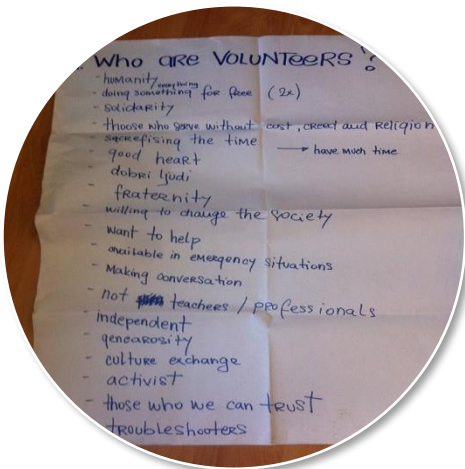 . Who are VOLUNTEERS ?
- humanity
everything
- doing something for free (2x)
- solidarity
- thoose who serve without cost, creed and Religion
- sacrefising the time → have much time
- good heart
- dobri ljudi
fraternity
- willing to change the society
- want to help
- available in emergency situations
- Making conversation
- not teachers / professionals
- independent
- genearosity
- culture exchange
- activist
- those who we can trust
- troubleshooters